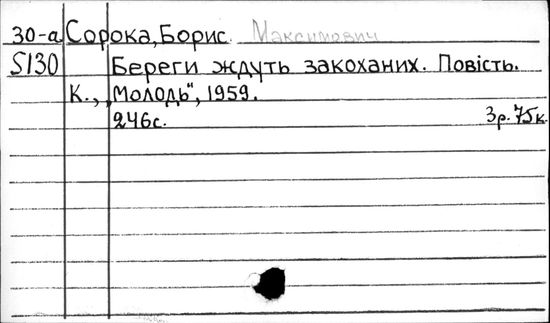 30-а Сорока, Борис Максимович
S130 Береги ждуть закоханих. Повість.
К., „Молодь", 1959.
246с. 3р.75к.